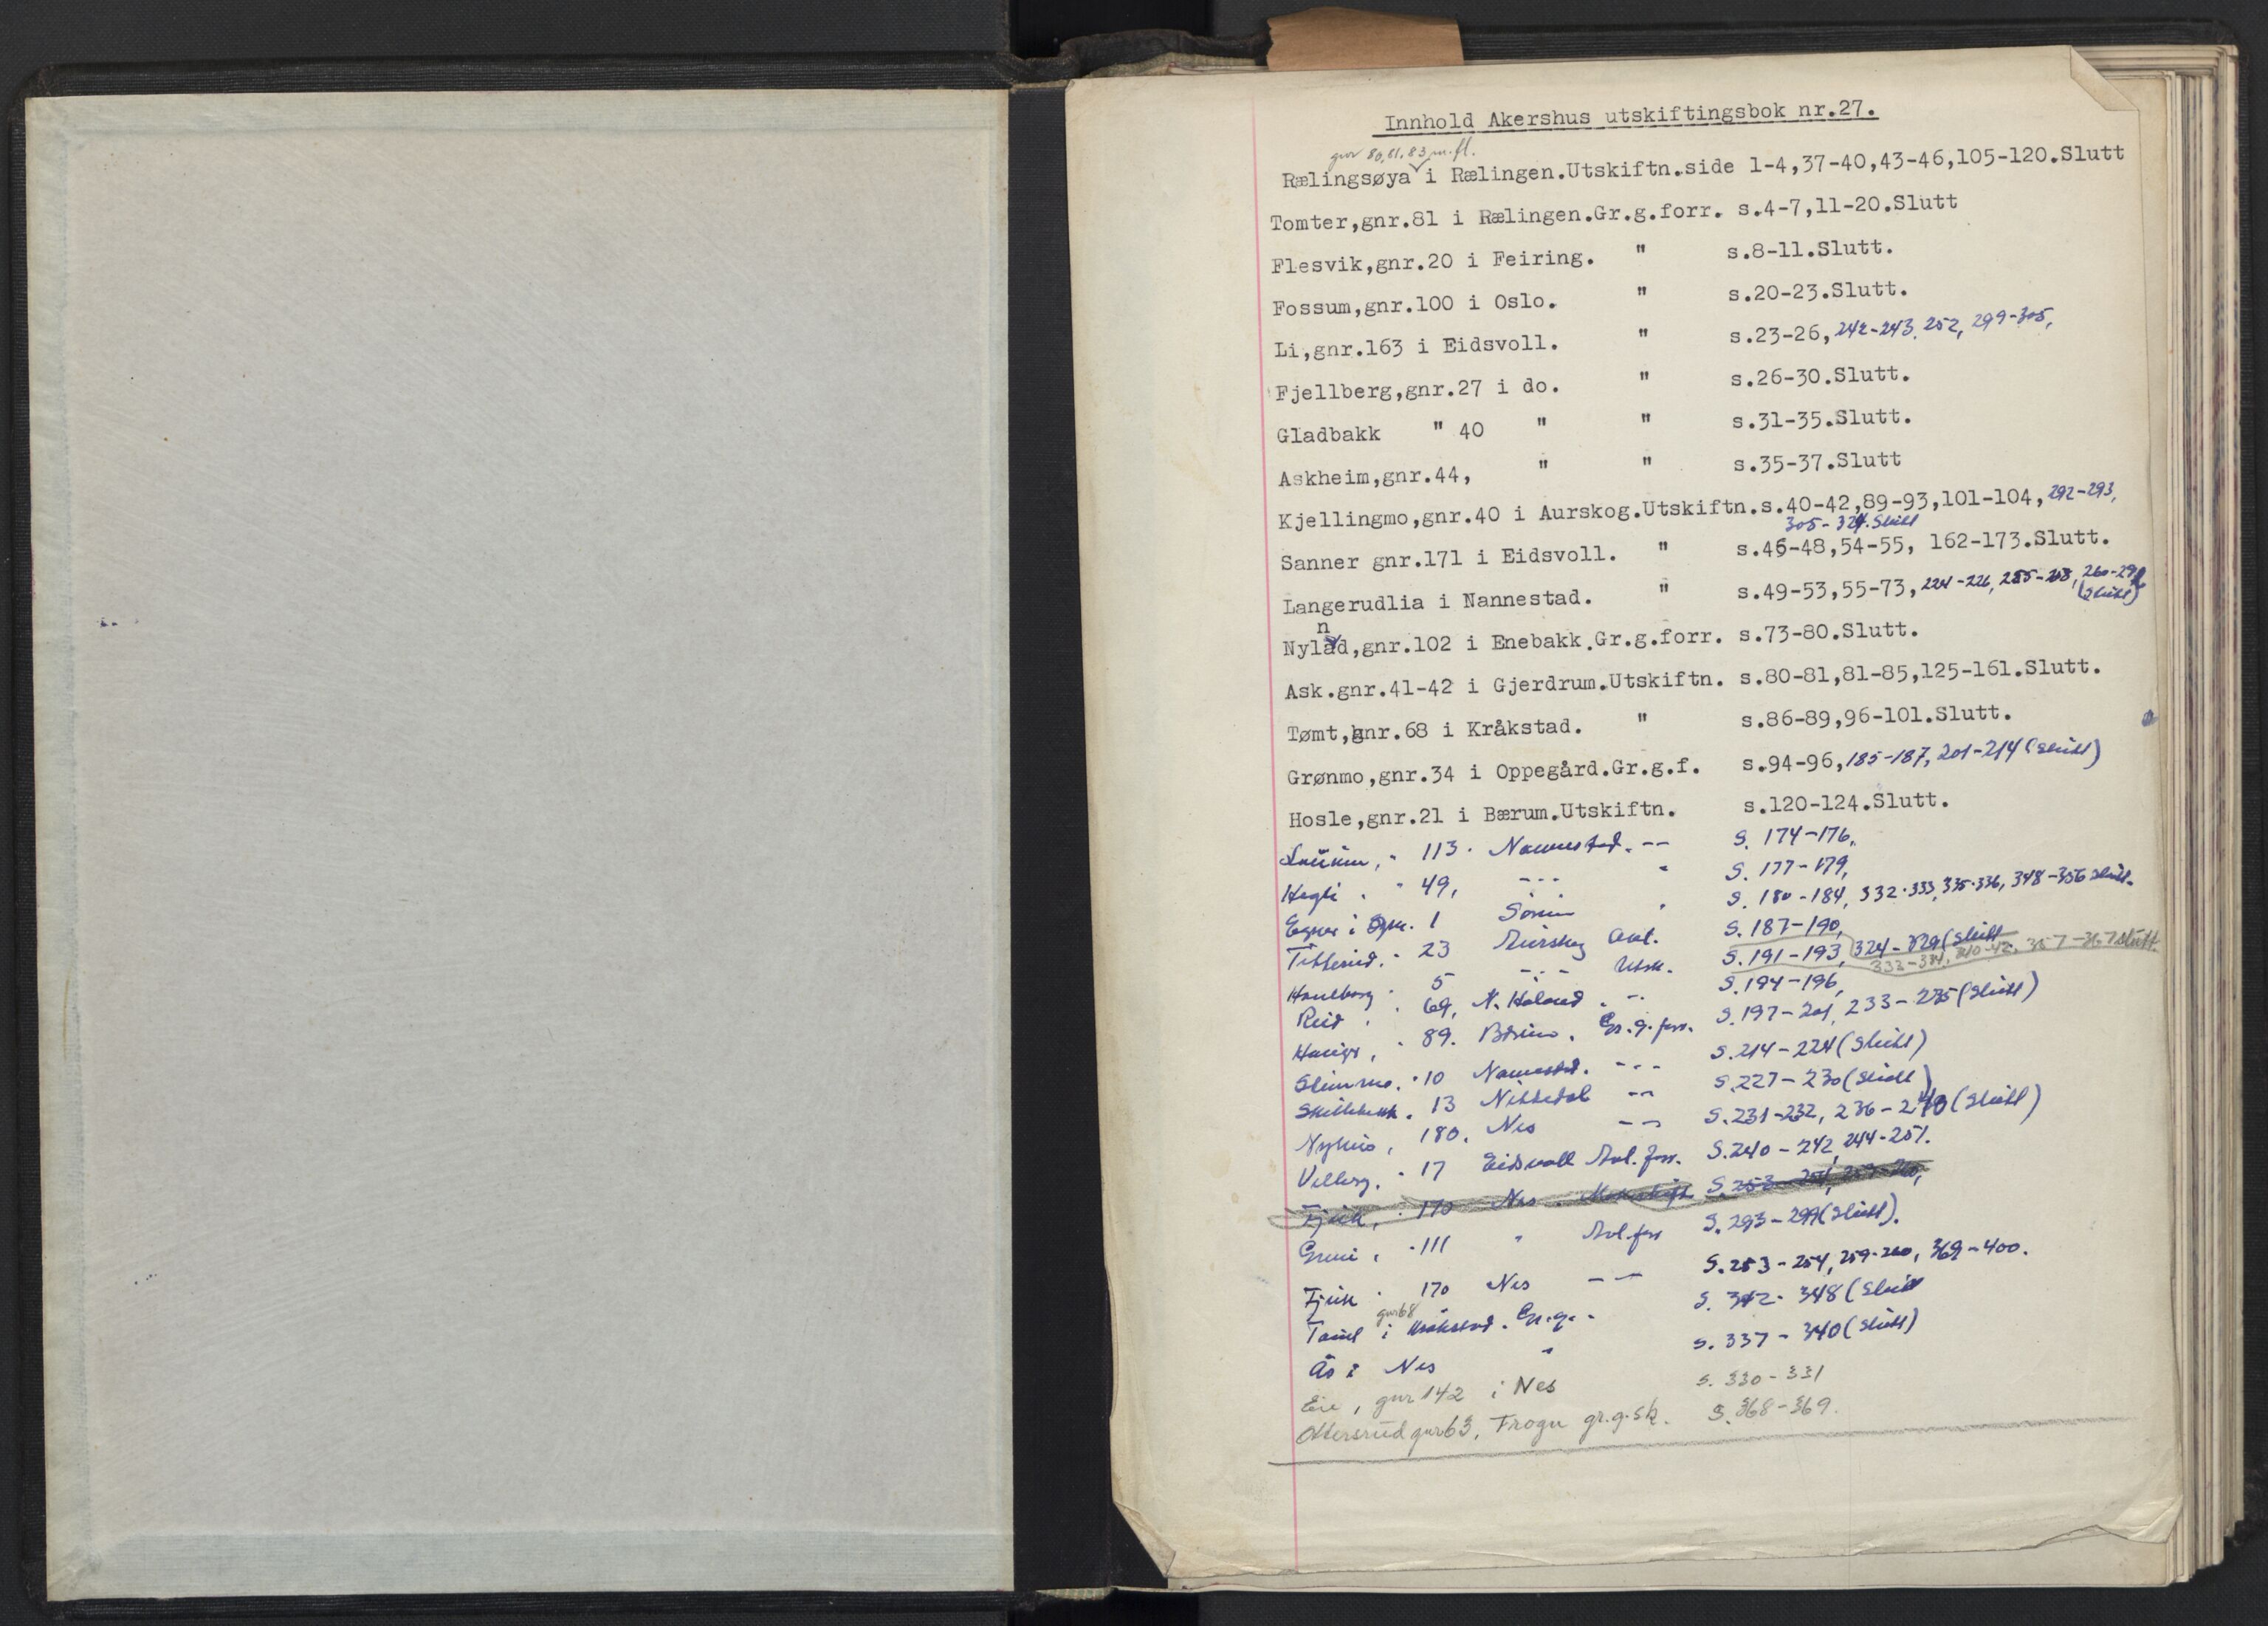 Innhold Akershus utskiftingsbok nr.27.
gnr 80,81,83 m.fl.
Rælingsøya i Rælingen.Utskiftn.side 1-4,37-40,43-46,105-120.Slutt
Tomter,gnr.81 i Rælingen.Gr.g.forr. s.4-7,11-20.Slutt
Flesvik,gnr.20 i Feiring. " s.8-11.Slutt.
Fossum,gnr.100 i Oslo. " s.20-23.Slutt.
Li,gnr.163 i Eidsvoll. " s.23-26, 242-243, 252, 299-305,
Fjellberg,gnr.27 i do. " s.26-30.Slutt.
Gladbakk " 40 " " s.31-35.Slutt.
Askheim,gnr.44, " " s.35-37.Slutt
Kjellingmo,gnr.40 i Aurskog.Utskiftn.s.40-42,89-93,101-104, 292-293,
305-324. Slutt
Sanner gnr.171 i Eidsvoll. " s.46-48,54-55, 162-173.Slutt.
Langerudlia i Nannestad. " s.49-53,55-73, 224-226, 260-292
(Slutt)
n
Nylad,gnr.102 i Enebakk.Gr.g.forr. s.73-80.Slutt.
Ask.gnr.41-42 i Gjerdrum.Utskiftn. s.80-81,81-85,125-161.Slutt.
Tømt,gnr.68 i Kråkstad. " s.86-89,96-101.Slutt.
Grønmo,gnr.34 i Oppegård.Gr.g.f. s.94-96, 185-187, 201-214 (Slutt)
Hosle,gnr.21 i Bærum.Utskiftn. s.120-124.Slutt.
" 113. Nannestad. -- S. 174-176,
Hegli . " 49, --- " S. 177-179,
1 S. 180-184, 332-333, 335-336, 348-356 Slutt.
23 Aurskog Avl. S. 187-190,
5 -:- Utsk. S. 191-193, 324-329 (Slutt
333-334, 340-42, 357-367 slutt.
69, N. Høland . -- S. 194-196,
Hauger, " 89. Bærum. Gr.g.forr. S. 197-201, 233-235 (Slutt)
" 10 Nannestad. --- S. 214-224 (Slutt)
Skillebekk . 13 Nittedal -- S. 227-230 (Slutt)
180. Nes -- S. 231-232, 236-240 (Slutt)
" 17 Eidsvoll Avl. forr. S. 240-242, 244-251.
Fjuk, " 170 Nes . S. 253-254, 259-260,
" 111 " Avl. forr S. 293-299 (Slutt).
Fjuk . 170 Nes -- S. 253-254, 259-260, 369-400.
gnr 68
i Kråkstad. Gr.g. - S. 342-348 (Slutt
Ås i Nes " s. 337-340 (Slutt)
Eie, gnr 142 i Nes s. 330-331
Ottersrud gnr 63, Frogn gr.g.sk. S. 368-369.